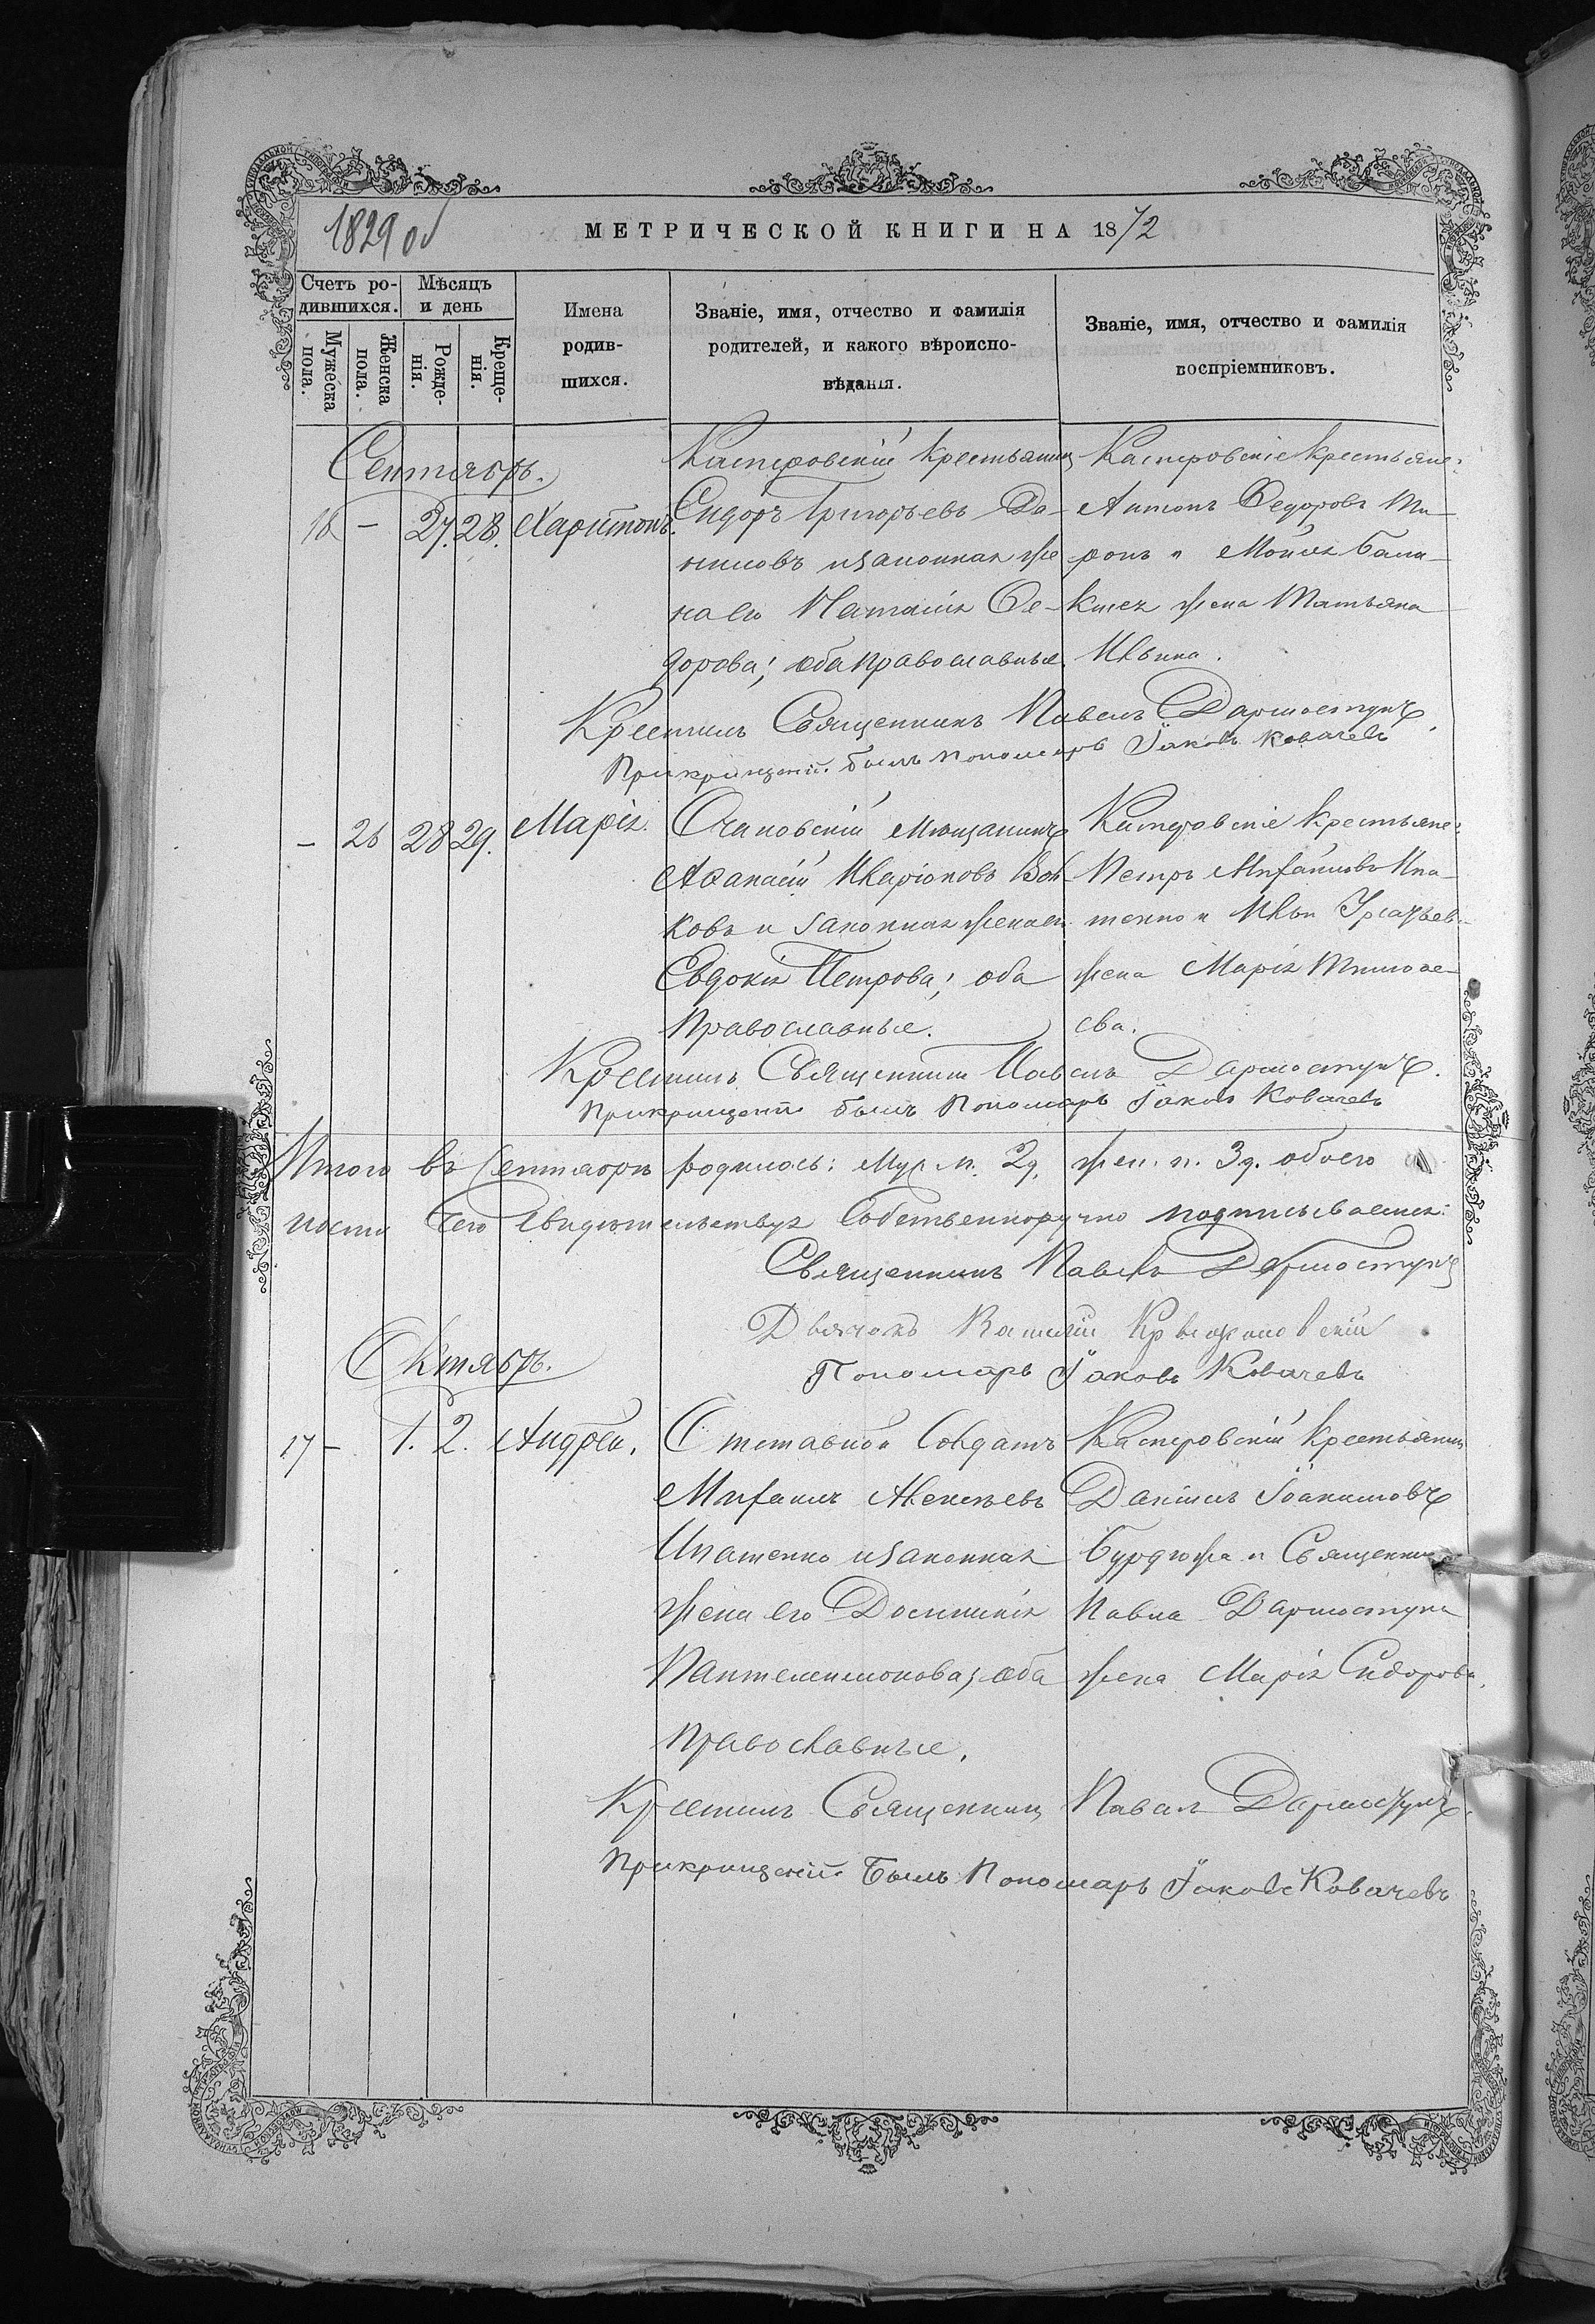 1829 об
МЕТРИЧЕСКОЙ КНИГИ НА 1872
Счетъ ро-
дившихся.
Мѣсяцъ
и день
Мужеска
пола.
Женска
пола.
Рожде-
нія.
Креще-
нія.
Имена
родив-
шихся.
Званіе, имя, отчество и фамилія
родителей, и какого вѣроиспо-
вѣданія.
Званіе, имя, отчество и фамилія
воспріемниковъ.
Сентябрь.
16 - 27. 28. Харитонъ.
Касперовскій крестьянинъ
Сидоръ Григорьевъ Да-
ниловъ и законная же
на его Наталія Ѳе-
дорова; оба православные.
Касперовскіе крестьяне:
Антонъ Ѳедоровъ
жена Татьяна
Ильина.
Крестилъ Священникъ Павелъ Дармостукъ.
При крищеніи былъ пономарь Іаковъ Ковачевъ
- 26 28 29. Марія.
Очаковскій мѣщанинъ
Аѳанасій Иларіоновъ Вол-
ковъ и законная жена его
Евдокія Петрова; оба
Православные.
Касперовскіе крестьяне:
Петръ Михаиловъ Ипа-
тенко и Ильи
жена Марія Тимоѳе-
ева.
Крестилъ Священникъ Павелъ Дармостукъ.
При крищеніи былъ Пономарь Іаковъ Ковачевъ
Итого въ Сентябрѣ родилось: муж. п. 2д. жен. п. 3д. обоего
чего свидѣтельствуя Собственноручно подписываемся:
Священникъ Павелъ Дармостукъ
Дьячокъ Василій
Пономарь Іаковъ Ковачевъ
Октябрь.
17 - 1. 2. Андрей.
Отставной Солдатъ
Михаилъ Алексѣевъ
Ипатенко и законная
жена его Досиѳинія
Пантелеимонова; оба
православные.
Касперовскій крестьянинъ
Даніилъ Іоакимовъ
Бурдюжа и Священника
Павла Дармостука
жена Марія Сидорова.
Крестилъ Священникъ Павелъ Дармостукъ.
При крищеніи былъ Пономарь Іаковъ Ковачевъ